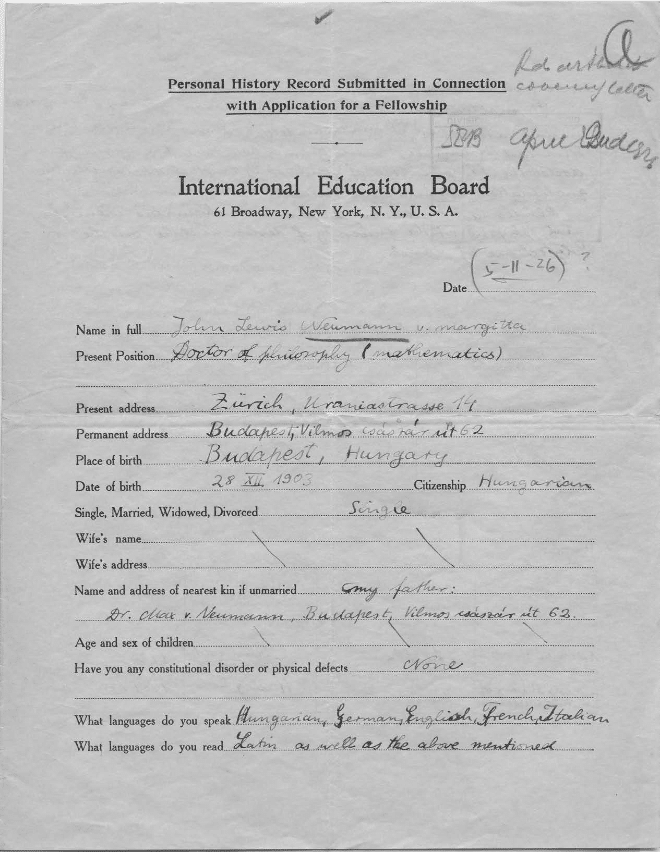 Personal History Record Submitted in Connection
with Application for a Fellowship
covering letter
IEB April Budapest
International Education Board
61 Broadway, New York, N. Y., U. S. A.
(5-11-26) ?
Date
Name in full John Lewis Neumann v. margitta
Present Position Doctor of philosophy (mathematics)
Present address Zürich, Uraniastrasse 14
Permanent address Budapest, Vilmos császár út 62
Place of birth Budapest, Hungary
Date of birth 28 XII. 1903 Citizenship Hungarian
Single, Married, Widowed, Divorced Single
Wife's name
Wife's address
Name and address of nearest kin if unmarried my father:
Dr. Max v. Neumann, Budapest, Vilmos császár út 62.
Age and sex of children
Have you any constitutional disorder or physical defects None
What languages do you speak Hungarian, German, English, French, Italian
What languages do you read Latin as well as the above mentioned